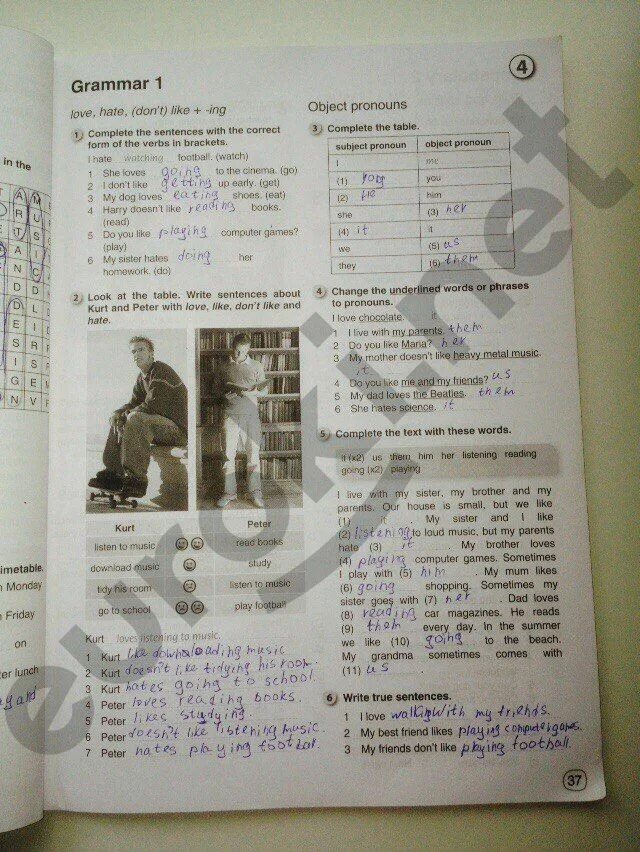 in the
A M
R U
T S
A I
N C
D D
D L
E I
S R
I S
G E
N V
timetable.
n Monday
n Friday
on
ter lunch
Grammar 1
4
love, hate, (don't) like + -ing
1 Complete the sentences with the correct
form of the verbs in brackets.
I hate watching football. (watch)
1 She loves going to the cinema. (go)
2 I don't like getting up early. (get)
3 My dog loves eating shoes. (eat)
4 Harry doesn't like reading books.
(read)
5 Do you like playing computer games?
(play)
6 My sister hates doing her
homework. (do)
2 Look at the table. Write sentences about
Kurt and Peter with love, like, don't like and
hate.
Kurt Peter
listen to music read books
download music study
tidy his room listen to music
go to school play football
Kurt loves listening to music.
1 Kurt like downloading music
2 Kurt doesn't like tidying his room.
3 Kurt hates going to school.
4 Peter loves reading books.
5 Peter likes studying
6 Peter doesn't like listening music.
7 Peter hates playing football.
Object pronouns
3 Complete the table.
subject pronoun object pronoun
I me
(1) you you
(2) he him
she (3) her
(4) it it
we (5) us
they (6) them
4 Change the underlined words or phrases
to pronouns.
I love chocolate. it
1 I live with my parents. them
2 Do you like Maria? her
3 My mother doesn't like heavy metal music.
it
4 Do you like me and my friends? us
5 My dad loves the Beatles. them
6 She hates science. it
5 Complete the text with these words.
it (x2) us them him her listening reading
going (x2) playing
I live with my sister, my brother and my
parents. Our house is small, but we like
(1) it . My sister and I like
(2) listening to loud music, but my parents
hate (3) it . My brother loves
(4) playing computer games. Sometimes
I play with (5) him . My mum likes
(6) going shopping. Sometimes my
sister goes with (7) her . Dad loves
(8) reading car magazines. He reads
(9) them every day. In the summer
we like (10) going to the beach.
My grandma sometimes comes with
(11) us
6 Write true sentences.
1 I love walking with my friends.
2 My best friend likes playing computer games.
3 My friends don't like playing football.
37
eurokinet